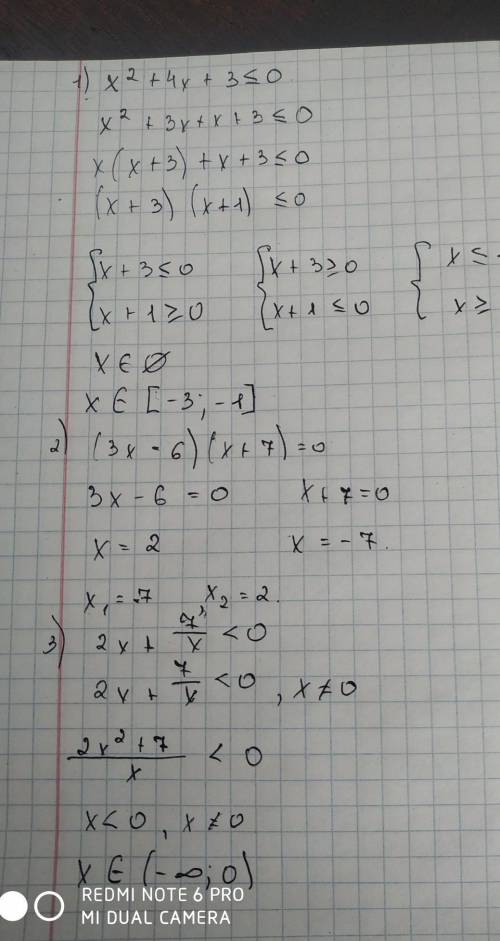 1) x² + 4x + 3 ≤ 0
x² + 3x + x + 3 ≤ 0
x(x + 3) + x + 3 ≤ 0
(x + 3) (x+1) ≤ 0
{ x + 3 ≤ 0 { x + 3 ≥ 0 { x ≤
{ x + 1 ≥ 0 { x + 1 ≤ 0 { x ≥
x ∈ ∅
x ∈ [-3; -1]
2) (3x - 6)(x + 7) = 0
3x - 6 = 0 x + 7 = 0
x = 2 x = -7.
x₁ = -7 x₂ = 2.
3) 2x + 7/x < 0
2x + 7/x < 0, x ≠ 0
(2x² + 7)/x < 0
x < 0, x ≠ 0
x ∈ (-∞; 0)
REDMI NOTE 6 PRO
MI DUAL CAMERA